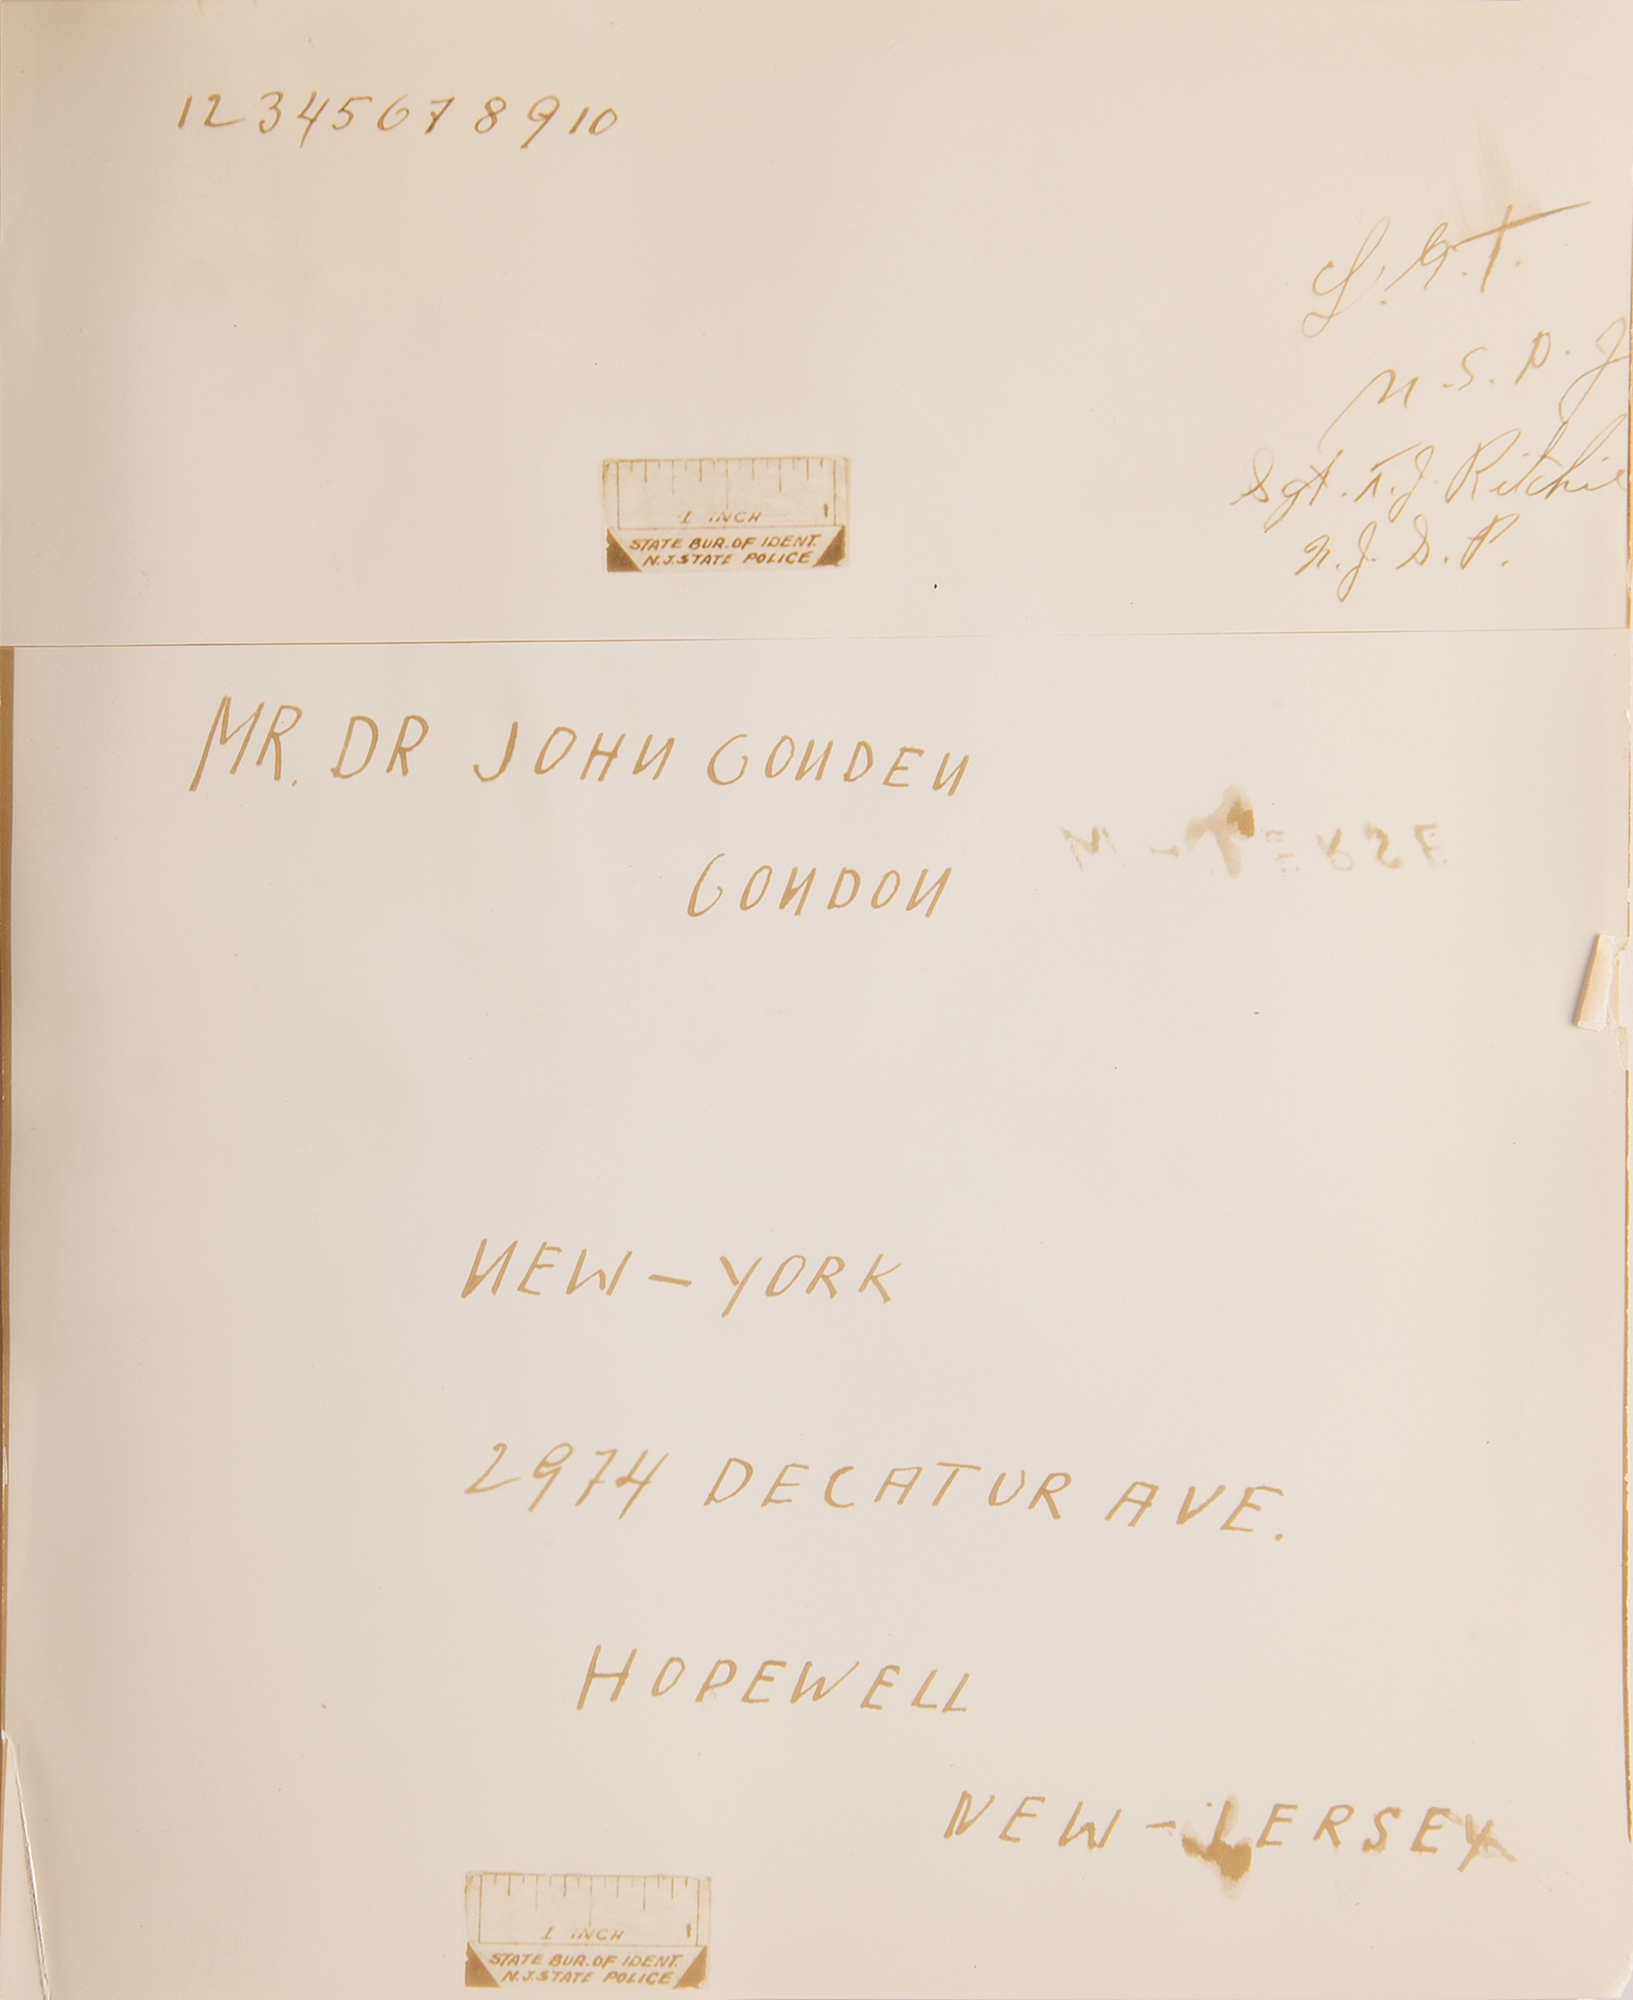 12345678910
L.G.T.
N.S.P.J
Sgt. T.J. Ritchie
N.J.S.P.
1 INCH 1
STATE BUR. OF IDENT.
N.J. STATE POLICE
MR. DR JOHN GONDEN
GONDON
NEW-YORK
2974 DECATUR AVE.
HOPEWELL
NEW-JERSEY
1 INCH 1
STATE BUR. OF IDENT.
N.J. STATE POLICE